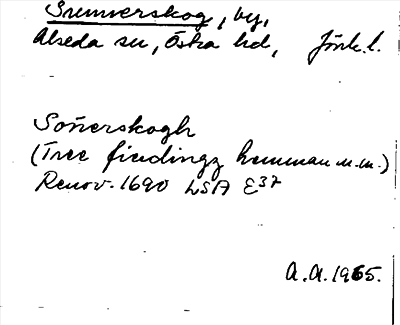 Sunnerskog, by,
Alseda sn, Östra hd, Jönk. l.
Sönerskogh
(Tree findingz hemman m.m.)
Renov. 1690 LSA E37
A.A. 1965.